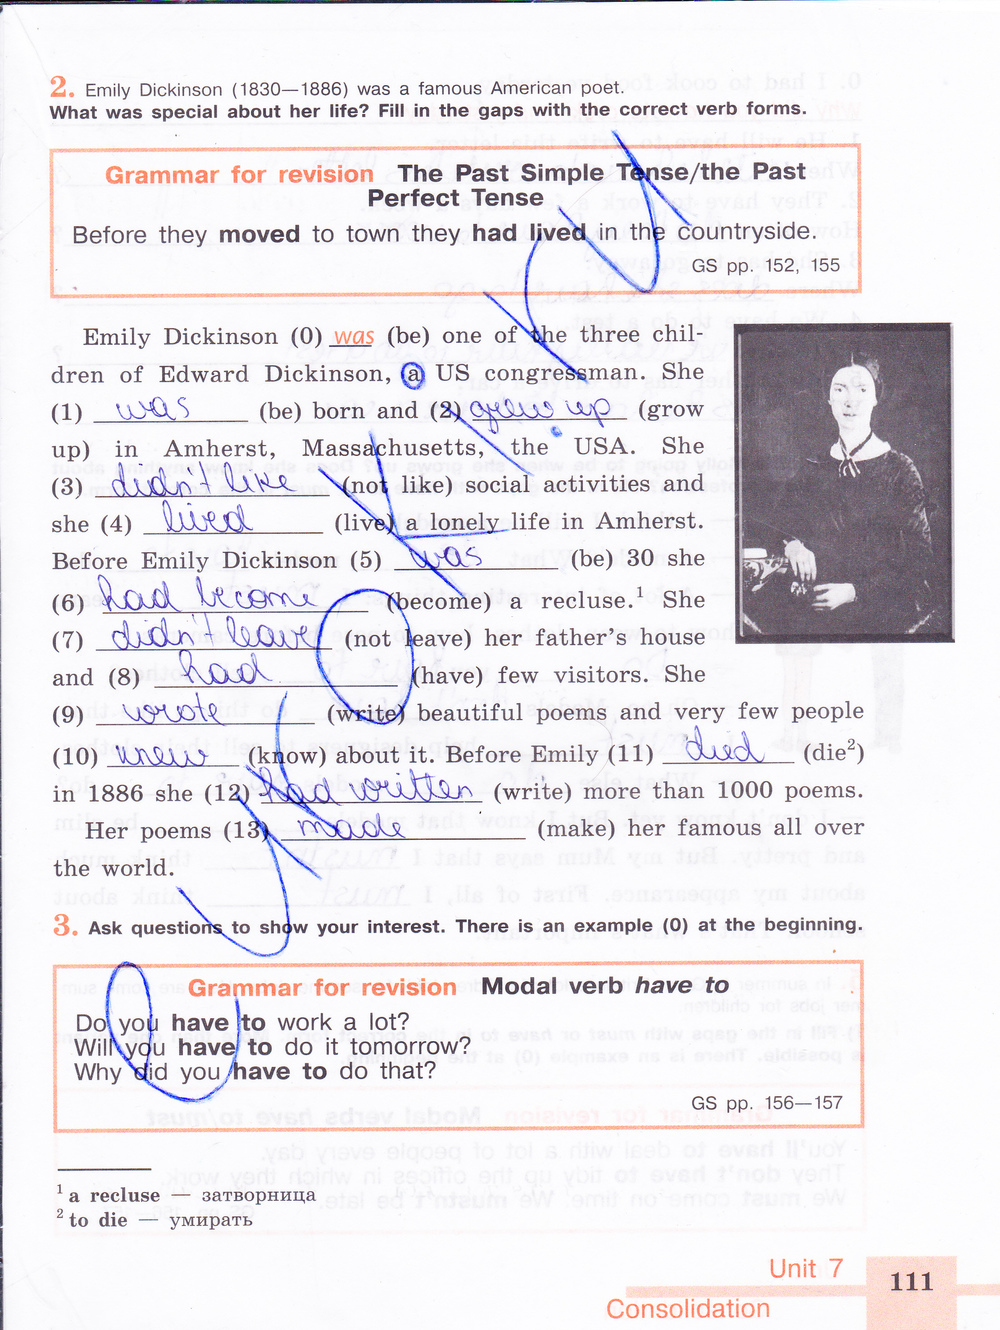 2. Emily Dickinson (1830—1886) was a famous American poet.
What was special about her life? Fill in the gaps with the correct verb forms.
Grammar for revision The Past Simple Tense/the Past
Perfect Tense
Before they moved to town they had lived in the countryside.
GS pp. 152, 155
Emily Dickinson (0) was (be) one of the three chil-
dren of Edward Dickinson, a US congressman. She
(1) was (be) born and (2) grew up (grow
up) in Amherst, Massachusetts, the USA. She
(3) didn't like (not like) social activities and
she (4) lived (live) a lonely life in Amherst.
Before Emily Dickinson (5) was (be) 30 she
(6) had become (become) a recluse.¹ She
(7) didn't leave (not leave) her father's house
and (8) had (have) few visitors. She
(9) wrote (write) beautiful poems and very few people
(10) knew (know) about it. Before Emily (11) died (die²)
in 1886 she (12) had written (write) more than 1000 poems.
Her poems (13) made (make) her famous all over
the world.
3. Ask questions to show your interest. There is an example (0) at the beginning.
Grammar for revision Modal verb have to
Do you have to work a lot?
Will you have to do it tomorrow?
Why did you have to do that?
GS pp. 156—157
¹ a recluse — затворница
² to die — умирать
Unit 7
111
Consolidation